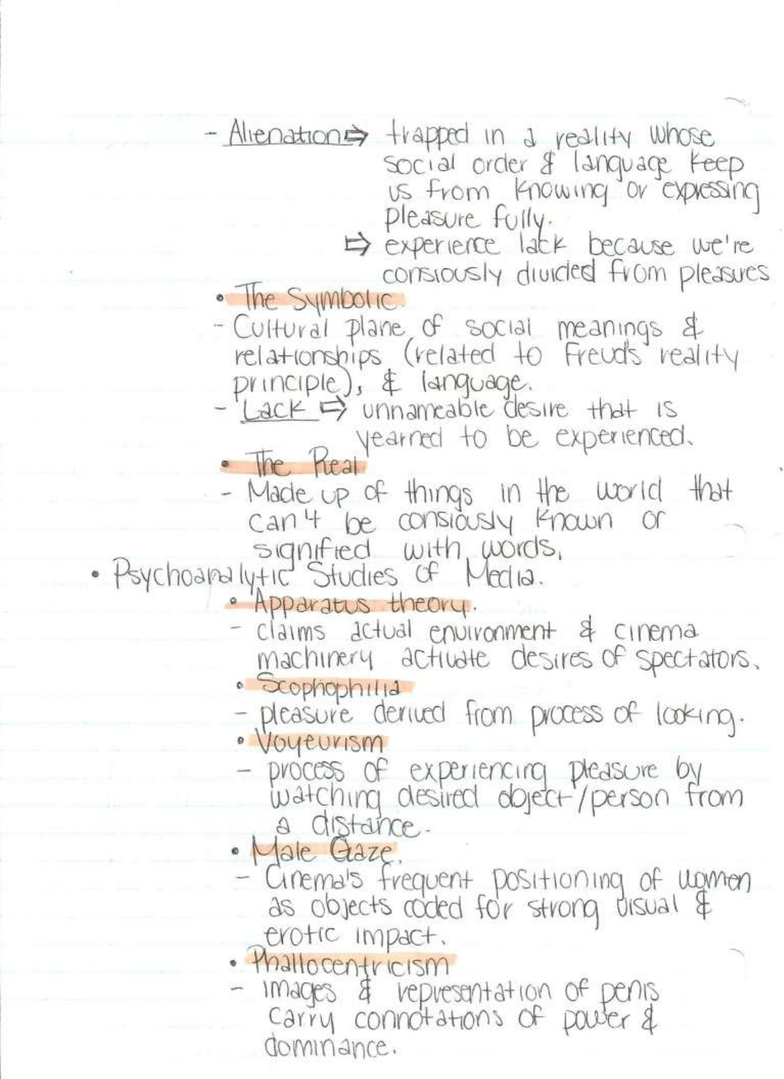 - Alienation ⇒ trapped in a reality whose
social order & language keep
us from knowing or expressing
pleasure fully.
⇒ experience lack because we're
consiously divided from pleasures
• The Symbolic
- Cultural plane of social meanings &
relationships (related to Freud's reality
principle), & language.
- Lack ⇒ unnameable desire that is
yearned to be experienced.
• The Real
- Made up of things in the world that
can't be consiously known or
signified with words.
• Psychoanalytic Studies of Media.
• Apparatus theory.
- claims actual environment & cinema
machinery activate desires of spectators.
• Scophophilia
- pleasure derived from process of looking.
• Voyeurism
- process of experiencing pleasure by
watching desired object/person from
a distance.
• Male Gaze.
- Cinema's frequent positioning of women
as objects coded for strong visual &
erotic impact.
• Phallocentricism
- images & representation of penis
carry connotations of power &
dominance.